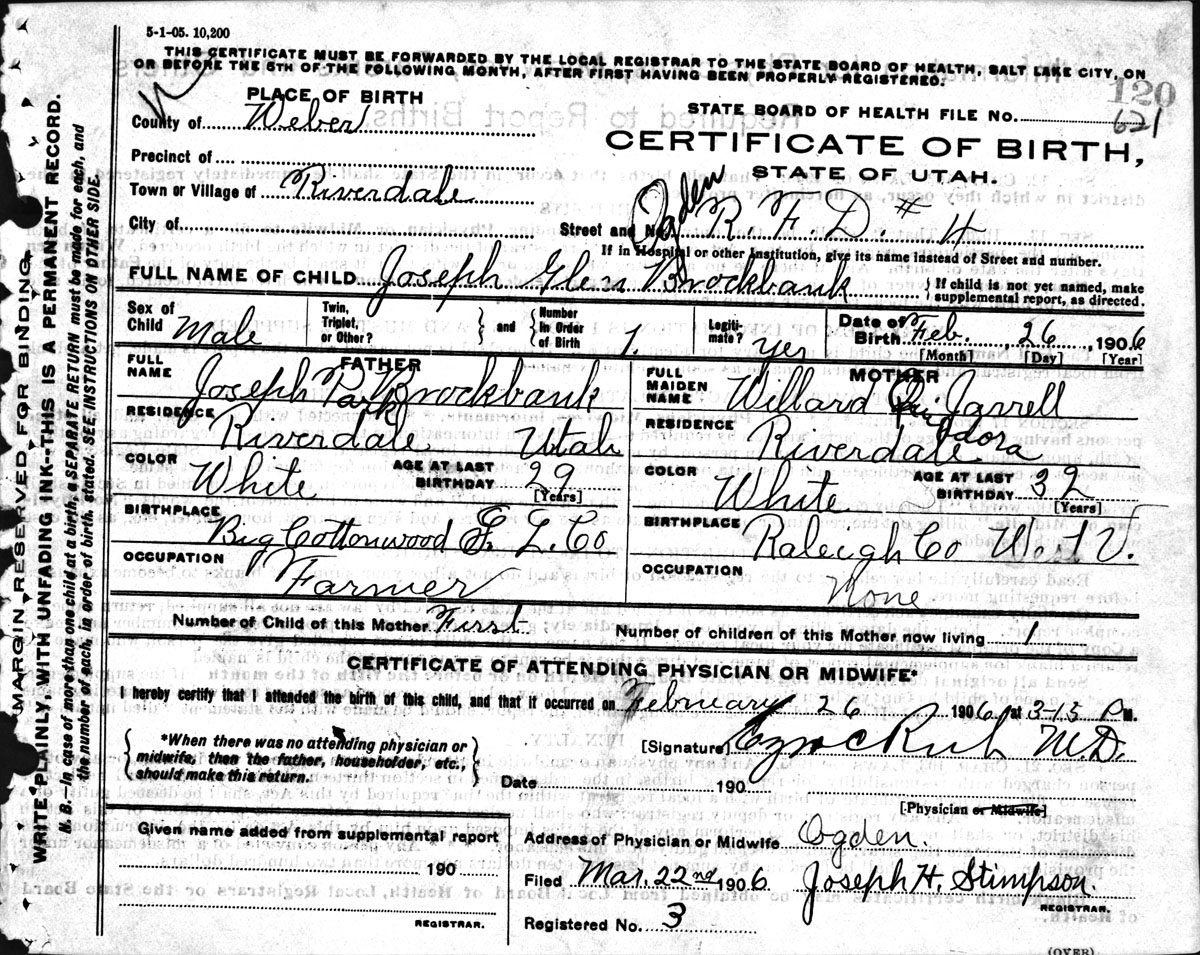 5-1-05. 10,200
THIS CERTIFICATE MUST BE FORWARDED BY THE LOCAL REGISTRAR TO THE STATE BOARD OF HEALTH, SALT LAKE CITY, ON
OR BEFORE THE 5TH OF THE FOLLOWING MONTH, AFTER FIRST HAVING BEEN PROPERLY REGISTERED.
120
PLACE OF BIRTH
STATE BOARD OF HEALTH FILE No. 621
County of Weber
CERTIFICATE OF BIRTH,
Precinct of
STATE OF UTAH.
Town or Village of Riverdale
City of
Street and No. Ogden R. F. D. # 4
If in Hospital or other Institution, give its name instead of Street and number.
FULL NAME OF CHILD Joseph Glen Brockbank
{ If child is not yet named, make
supplemental report, as directed.
Sex of Child Male
Twin, Triplet, or Other? } and { Number in Order of Birth 1.
Legiti-mate? Yes
Date of Birth Feb. 26, 1906
[Month] [Day] [Year]
FATHER
FULL NAME Joseph P. Brockbank
Park
RESIDENCE Riverdale Utah
COLOR White AGE AT LAST BIRTHDAY 29
[Years]
BIRTHPLACE Big Cottonwood S. L. Co
OCCUPATION Farmer
MOTHER
FULL MAIDEN NAME Willard Jarrell
RESIDENCE Riverdale
COLOR White AGE AT LAST BIRTHDAY 32
[Years]
BIRTHPLACE Raleigh Co W. V.
OCCUPATION None
Number of Child of this Mother First Number of children of this Mother now living 1
CERTIFICATE OF ATTENDING PHYSICIAN OR MIDWIFE*
I hereby certify that I attended the birth of this child, and that it occurred on February 26 1906 at 3-15 P M.
{ *When there was no attending physician or
midwife, then the father, householder, etc.,
should make this return. }
[Signature] Ezra C Rich M.D.
Date 190
[Physician or Midwife]
Given name added from supplemental report
190
REGISTRAR.
Address of Physician or Midwife Ogden.
Filed Mar. 22nd 1906 Joseph H. Stimpson.
REGISTRAR.
Registered No. 3
(OVER)
MARGIN RESERVED FOR BINDING
WRITE PLAINLY WITH UNFADING INK--THIS IS A PERMANENT RECORD.
N. B.--In case of more than one child at a birth, a SEPARATE RETURN must be made for each, and
the number of each, in order of birth, stated. SEE INSTRUCTIONS ON OTHER SIDE.